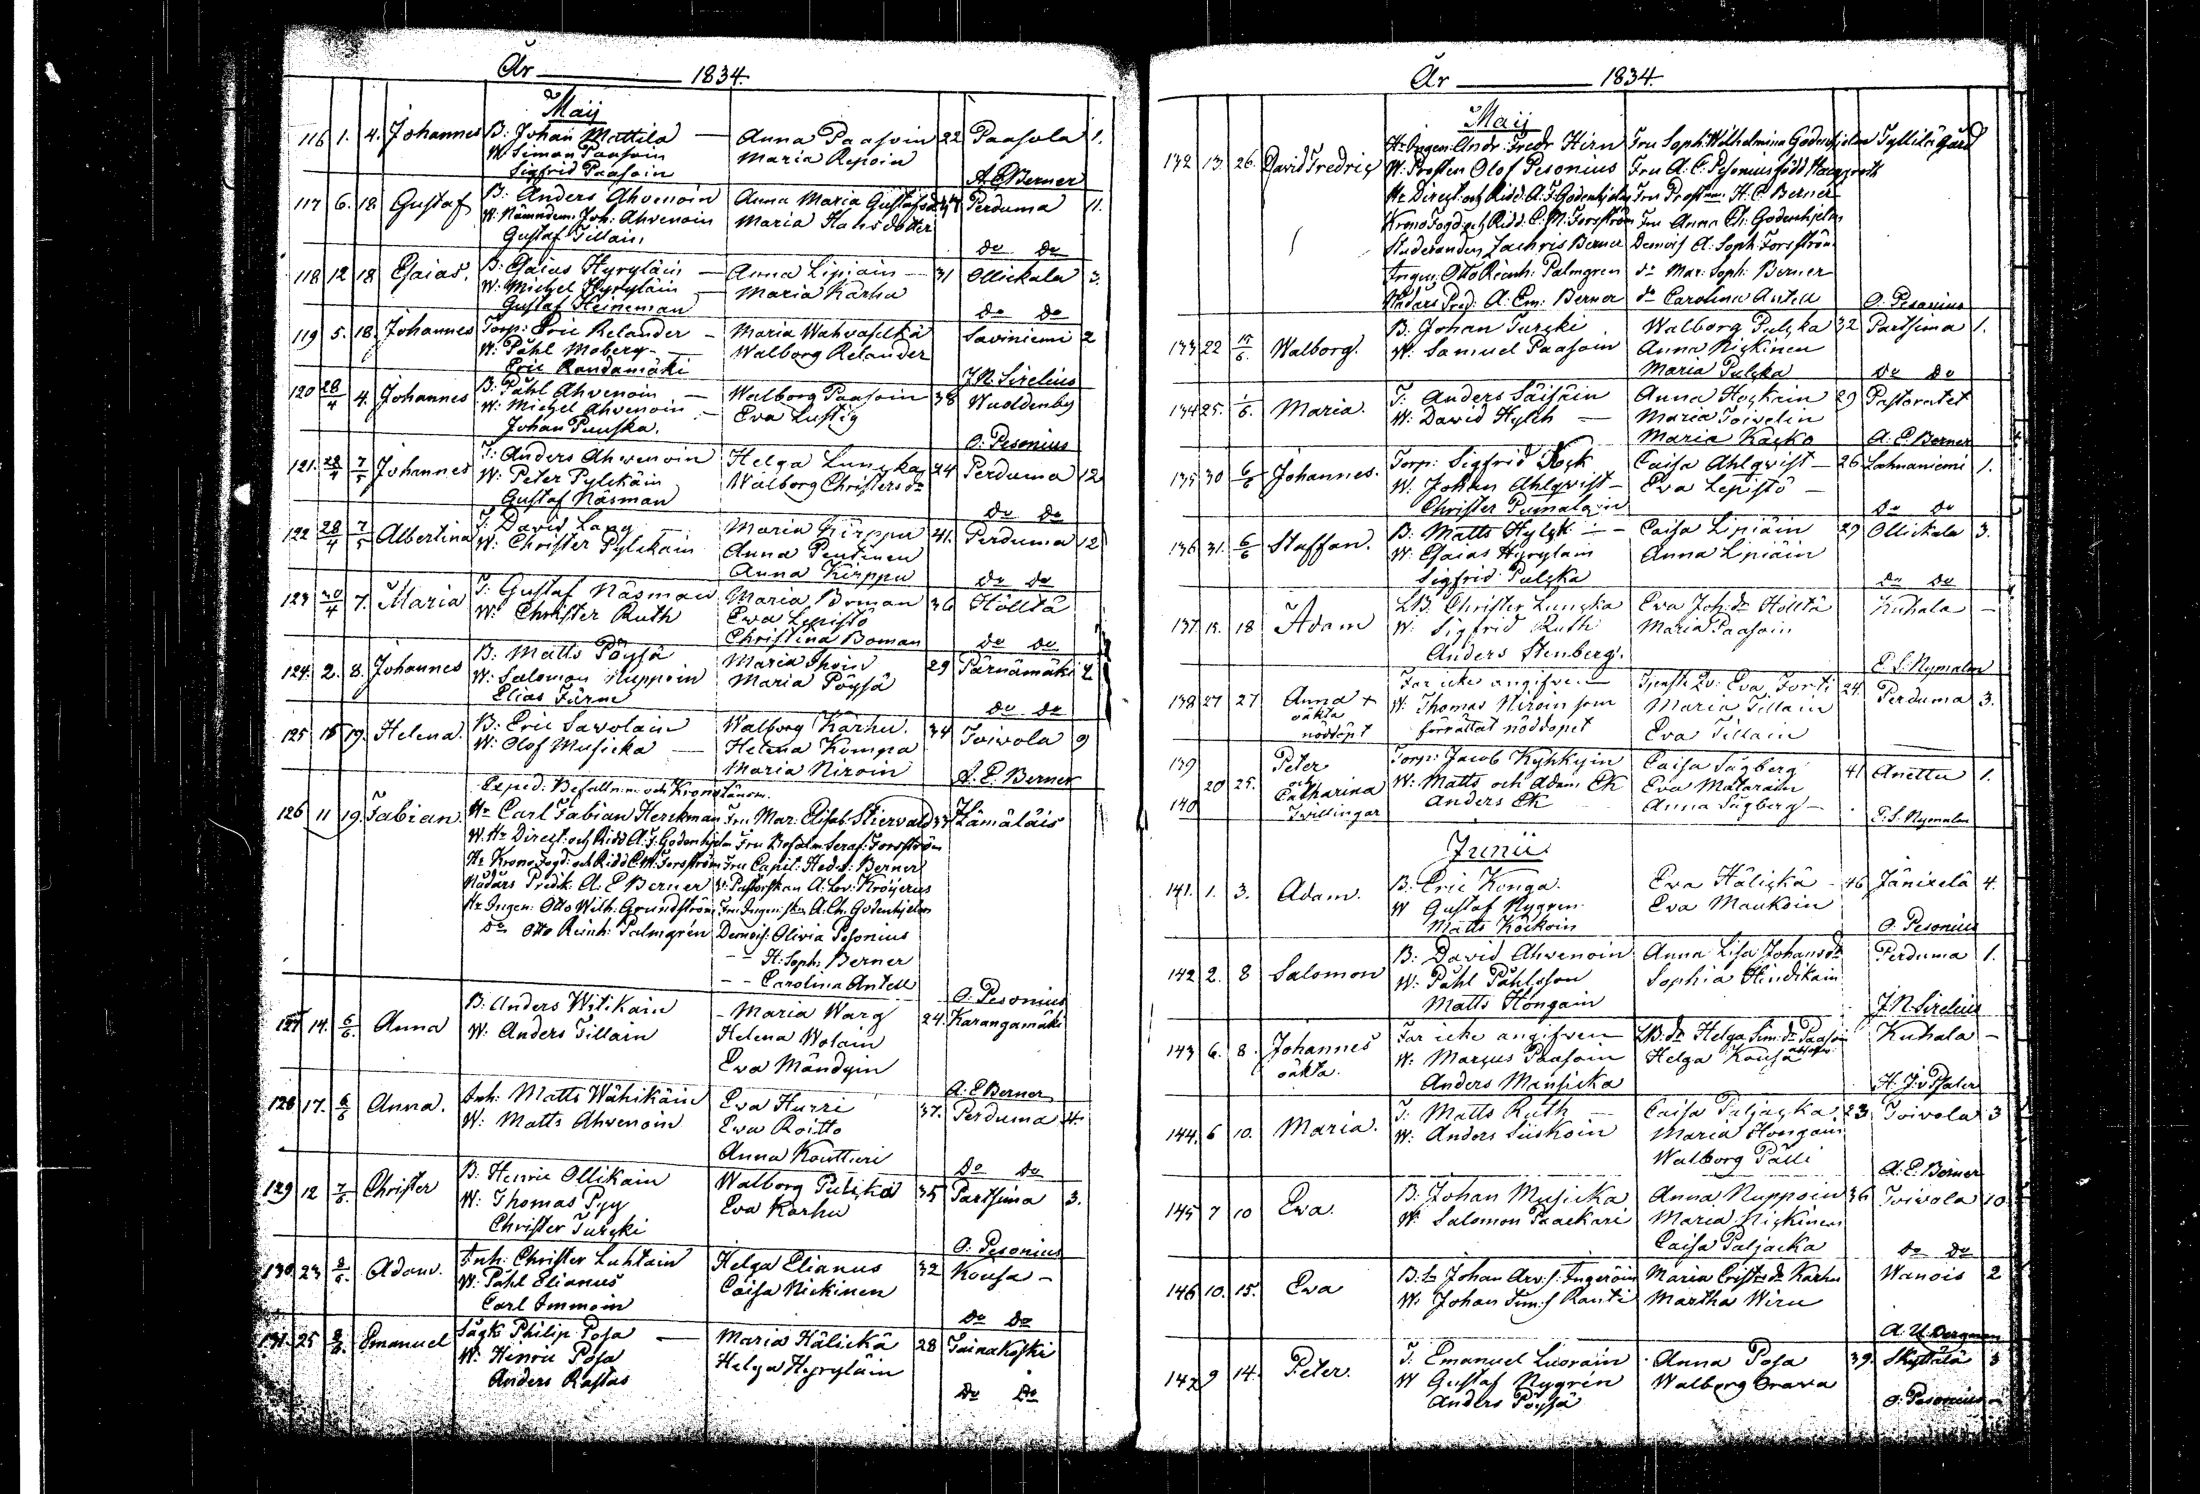 År 1834.
Maij
116 1. 4. Johannes B: Johan Mattila Anna Paasoin 22 Paasola 1.
W Simon Paasoin Maria Repoin
Sigfrid Paasoin A. E Berner
117 6. 18. Gustaf B: Anders Ahvenoin Anna Maria Gustafsd. Perduma 11.
W. Nämndem. Joh: Ahvenoin Maria Hansdotter
Gustaf Tillain Do Do
118 12 18 Esaias. B: Esaias Hyryläin Anna Lipiain 31 Ollikala 3.
W: Michel Hyryläin Maria Karhu
Gustaf Heineman Do Do
119 5. 18. Johannes Torp: Eric Relander Maria Wahvaselkä Saviniemi 2
W: Påhl Moberg Walborg Relander
Eric Randamäki J. N. Sirelius
120 28/4 4. Johannes B: Påhl Ahvenoin Walborg Paasoin 38 Wuoldenby
W: Michel Ahvenoin Eva Lustig
Johan Puuska. O: Pesonius
121. 28/4 7/5 Johannes T: Anders Ahvenoin Helga Lungka 24 Perduma 12
W: Peter Pylkäin Walborg Christersdr
Gustaf Näsman Do Do
122 28/4 7/5 Albertina T: David Lang Maria Kirppu 41. Perduma 12
W: Christer Pylckain Anna Pentinen
Anna Kirppu Do Do
123 30/4 7. Maria T: Gustaf Näsman Maria Boman 36 Hölltä
W: Christer Ruth Eva Lepistö
Christina Boman Do Do
124. 2. 8. Johannes B: Matts Pöysä Maria Ihoin 29 Pärnämäki 2
W: Salomon Nuppoin Maria Pöysä
Elias Färm Do Do
125 15 19. Helena. B: Eric Savolain Walborg Karhu. 34 Toivola 9
W: Olof Musicka Helena Kompa
Maria Niroin A. E. Berner
Exped: Befalln:m: och Kronolänsm.
126 11 19. Fabian Hr Carl Fabian Herckman Fru Mar: Elisab: Stiervald 37 Hämäläis
W. Hr Direct: och Ridd A. F. Godenhjelm Fru Befalm. Seraf: Forsström
Hr Krono Fogd: och Ridd C. M. Forsström Fru Capit: Hedv: Berner
Nådårs Predik: A: E Berner V: Pastorskan A: Lov: Kröijerus
Hr Ingen: Otto Wilh: Grundström Fru Ingeni:skan A: Ch: Godenhjelm
Do Otto Reinh: Palmgrén Demois: Olivia Pesonius
– – H: Soph: Berner
– – Carolina Antell O: Pesonius
127 14. 6/6. Anna B: Anders Witikain Maria Warg 24. Karangamäki
W: Anders Tillain Helena Wolain
Eva Mändyin A: E Berner
128 17. 6/6 Anna. Inh: Matts Wähikäin Eva Hurri 37. Perduma 4.
W: Matts Ahvenoin Eva Roitto
Anna Konttieri Do Do
129 12 7/6. Christer B: Henric Ollikain Walborg Pulcka 35 Partsima 3.
W: Thomas Pyy Eva Karhu
Christer Turcki O: Pesonius
130 23 8/6. Adam. Inh: Christer Luhtain Helga Elianus 32 Kousa –
W: Påhl Elianus Caisa Nickinen
Carl Immoin Do Do
131. 25 8/6. Emanuel Sågk: Philip Posa Maria Hälickä 28 Tainakoski
W: Henric Posa Helga Hyryläin
Anders Rastas Do Do
År 1834.
Maij
132 13. 26. David Fredric Hr Ingen: Andr: Fredr: Hirn Fru Soph: Wilhelmina Godenhjelm Tyllilä gård
W: Prosten Olof Pesonius Fru A: C: Pesonius född
Hr Direct: och Ridd. A. F. Godenhjelm Fru Prost:nn H. C. Berner
Krono Fogd. och Ridd. C. M. Forsström Fru Anna Ch: Godenhjelm
Studeranden Zachris Berner Demois A: Soph: Forsström
Ingen: Otto Reinh: Palmgren do Mar: Soph: Berner
Nådårs Pred: A: Em: Berner do Carolina Antell O: Pesonius
133 22 15/6. Walborg. B: Johan Turcki Walborg Pulcka 32 Partsima 1.
W: Samuel Paasoin Anna Nickinen
Maria Pulcka Do Do
134 25. 1/6. Maria. T: Anders Säisäin Anna Hockain 29 Pastoratet
W: David Hylth Maria Toivelin
Maria Kacko A: E Berner
135 30 6/6 Johannes. Torp: Sigfrid Kock Caisa Ahlqvist 26 Lahnaniemi 1.
W: Johan Ahlqvist Eva Lepistö
Christer Pumalain Do Do
136 31. 6/6 Staffan. B: Matts Hylck Caisa Lipiäin 29 Ollikala 3.
W: Esaias Hyryläin Anna Lipiäin
Sigfrid Pulcka Do Do
137 15. 18 Adam L.B: Christer Lungka Eva Joh:dr Hölltä Kuhala –
W: Sigfrid Ruth Maria Paasoin
Anders Stenberg. E. S. Nymalm
138 27 27 Anna + Far icke angifven Tjenste Qv: Eva Torti 24 Perduma 3.
oäkta W: Thomas Niroin som Maria Tillain
nöddöpt förrättat nöddopet Eva Tillain
139 Peter Torp: Jacob Kyhkyin Caisa Sågberg 41 Anettu 1.
20 25. och Catharina W: Matts och Adam Ek Eva Matarain
140 Tvillingar Anders Ek Anna Sågberg E. S. Nymalm
Junii
141. 1. 3. Adam. B: Eric Konga Eva Hälickä 46 Jänixelä 4.
W Gustaf Nygren Eva Maukoin
Matts Kockoin O. Pesonius
142 2. 8 Salomon B: David Ahvenoin Anna Lisa Johansdr Perduma 1.
W: Påhl Påhlsson Sophia Hindikain
Matts Hongain J. N. Sirelius
143 6. 8. Johannes Far icke angifven LB:dr Helga Sim:dr Paasoin Kuhala –
oäkta. W: Marcus Paasoin Helga Kousa
Anders Mansicka H. J: v Pfaler
144. 6 10. Maria. T: Matts Ruth Caisa Paljacka 23 Toivola 3
W: Anders Siiskoin Maria Hongain
Walborg Pälli A: E. Berner
145 7 10 Eva. B: Johan Musicka Anna Nuppoin 36 Toivola 10
W: Salomon Paackari Maria Nickinen
Caisa Paljacka Do Do
146 10. 15. Eva B:s Johan Arv:s Ingeröin Maria Crist:dr Karhu Wanois 2
W: Johan Tom:s Rauti Martha Wiru
A. U. Bergman
147 9 14. Peter. T: Emanuel Luorain Anna Posa 39. Skyttälä 3
W Gustaf Nygrén Walborg Orava
Anders Pöysä O: Pesonius